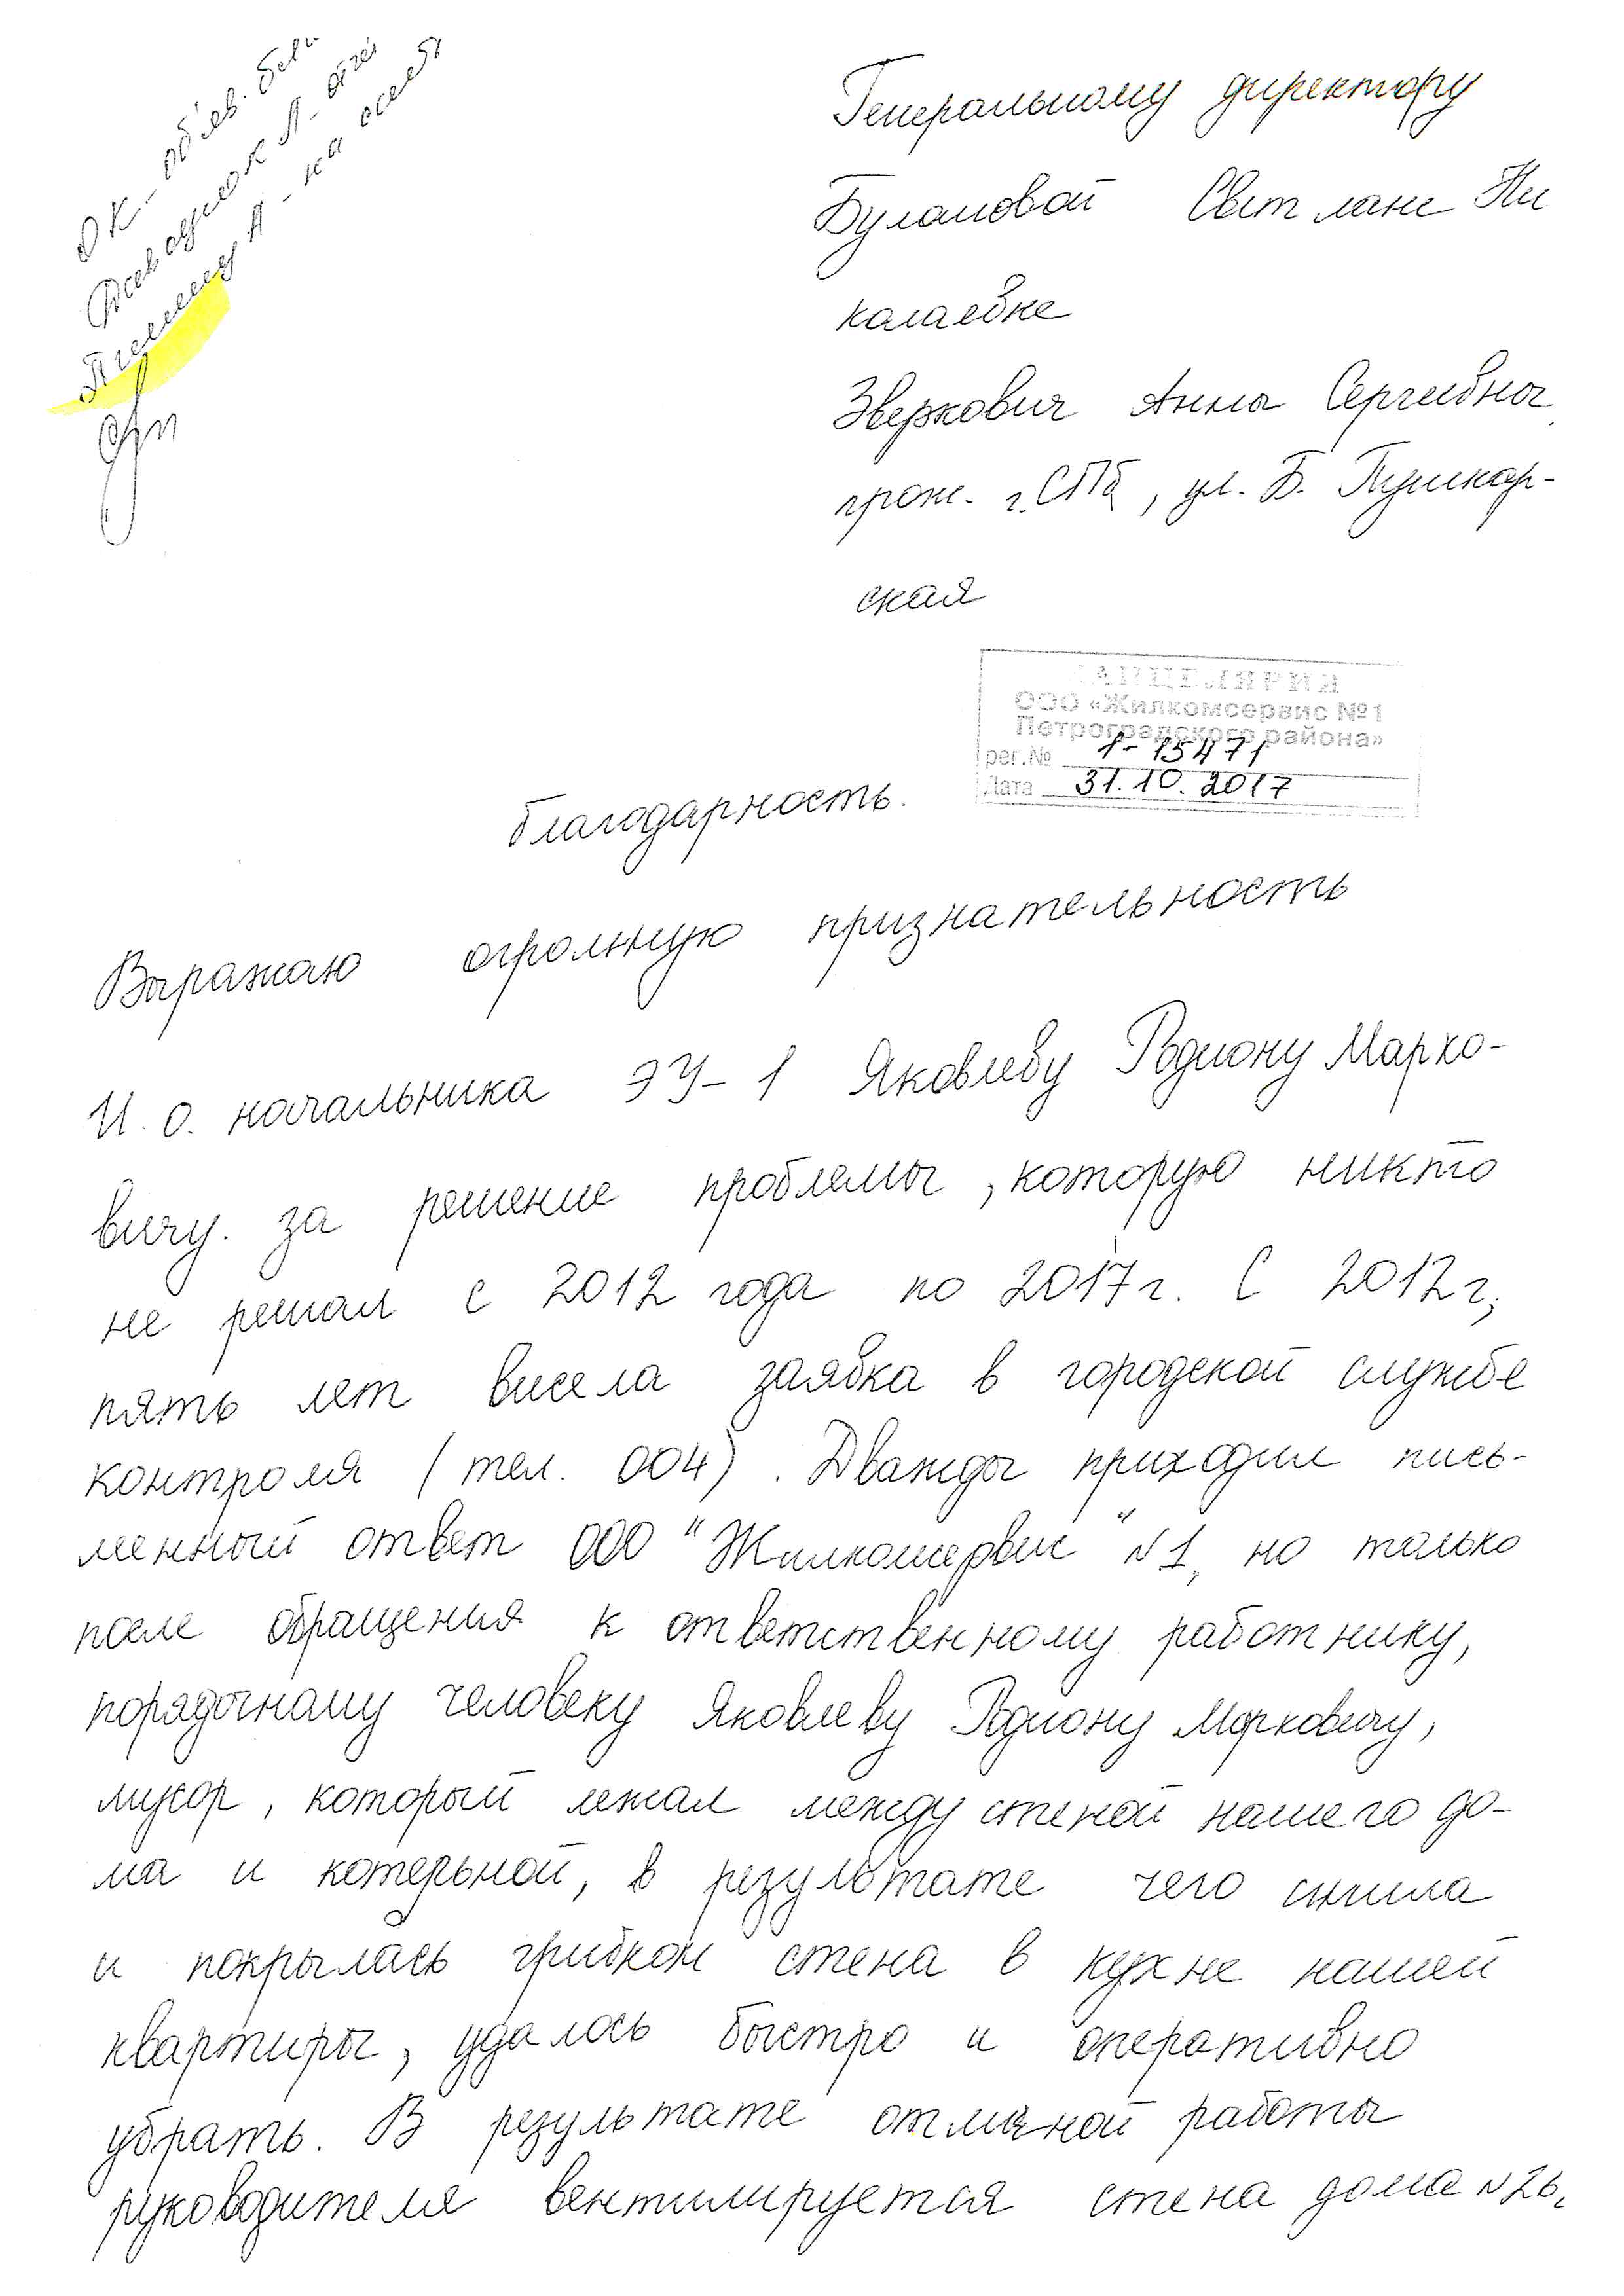 ОК - объяв. бл
Генеральному директору
Булановой Светлане Ни
колаевне
Зверкович Анна Сергеевна
прож. г. СПб, ул. Б. Пушкар-
ская
КАНЦЕЛЯРИЯ
ООО «Жилкомсервис №1
Петроградского района»
рег.№ 1-15471
Дата 31.10.2017
благодарность.
Выражаю огромную признательность
И.о. начальника ЭУ-1 Яковлеву Родиону Марко-
вичу. за решение проблемы, которую никто
не решал с 2012 года по 2017г. С 2012г,
пять лет висела заявка в городской службе
контроля (тел. 004). Дважды приходил пись-
менный ответ ООО "Жилкомсервис" N1, но только
после обращения к ответственному работнику,
порядочному человеку Яковлеву Родиону Марковичу,
мусор, который лежал между стеной нашего до-
ма и котельной, в результате чего сгнила
и покрылась грибком стена в кухне нашей
квартиры, удалось быстро и оперативно
убрать. В результате отличной работы
руководителя вентилируется стена дома N26,